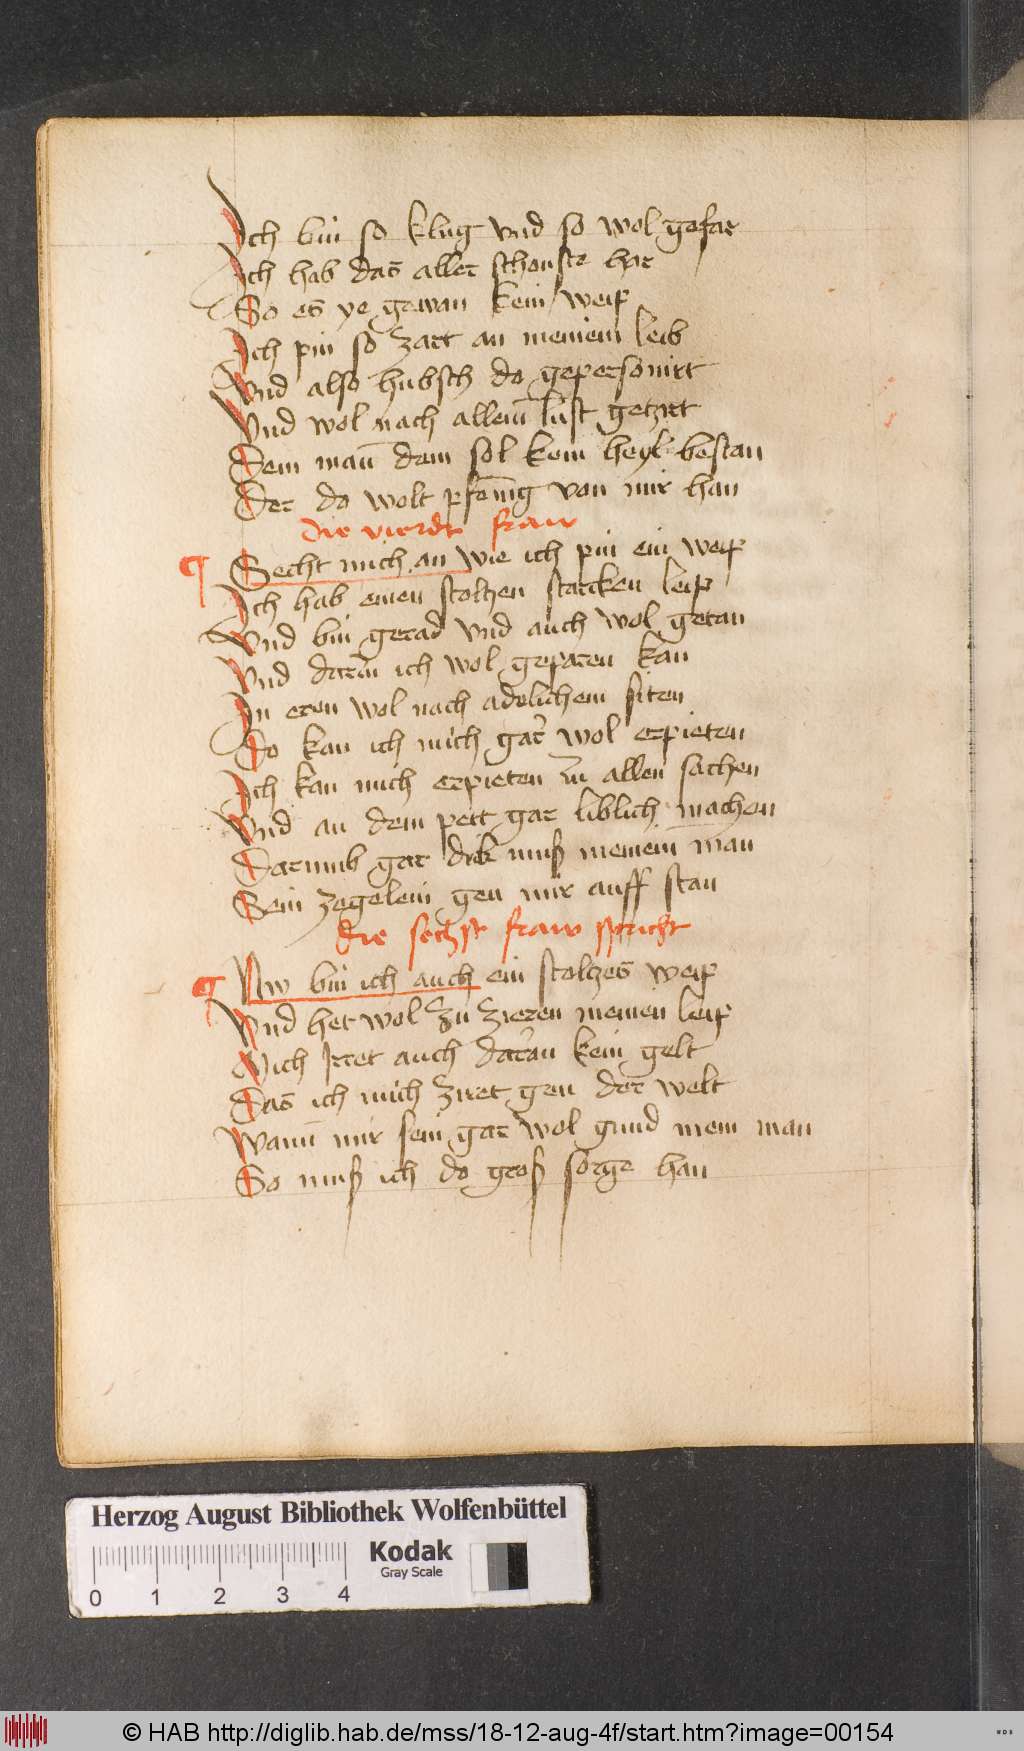 Ich bin so klug vnd so wol gefar
Ich hab das aller schonste har
So es ye gewan kein weip
Ich pin so zart an meinem leib
Vnd also hubsch do gepersonirt
Vnd wol nach allem lust getzirt
Dem man̄ dem sol kein heyl bestan
Der do wolt pfenīg von mir han
die vierdt fraw
¶ Secht mich an wie ich pin ein weip
Ich hab einen stoltzen starcken leip
Vnd bin gerad vnd auch wol getan
Vnd darin ich wol geparen kan
In eren wol nach adelichem siten
Do kan ich mich gar wol erpieten
Ich kan mich erpieten zu allen sachen
Vnd an dem pett gar liblich machen
Darumb gar dick muß meinem man
Sein zagelein gen mir auff stan
die sechst fraw spricht
¶ Nw bin ich auch ein stoltzes weip
Vnd het wol zu zieren meinen leip
Mich Irret auch daran kein gelt
Das ich mich ziret gen der welt
Wann̄ mir sein gar wol gund mein man
So muß ich do groß sorge han
Herzog August Bibliothek Wolfenbüttel
Kodak
Gray Scale
0 1 2 3 4
© HAB http://diglib.hab.de/mss/18-12-aug-4f/start.htm?image=00154